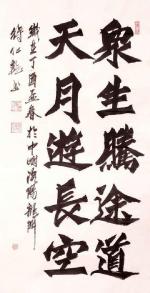 眾生騰途道
天月遊長空
歲在丁酉孟春於中國洛陽龍門
徐仁乾書